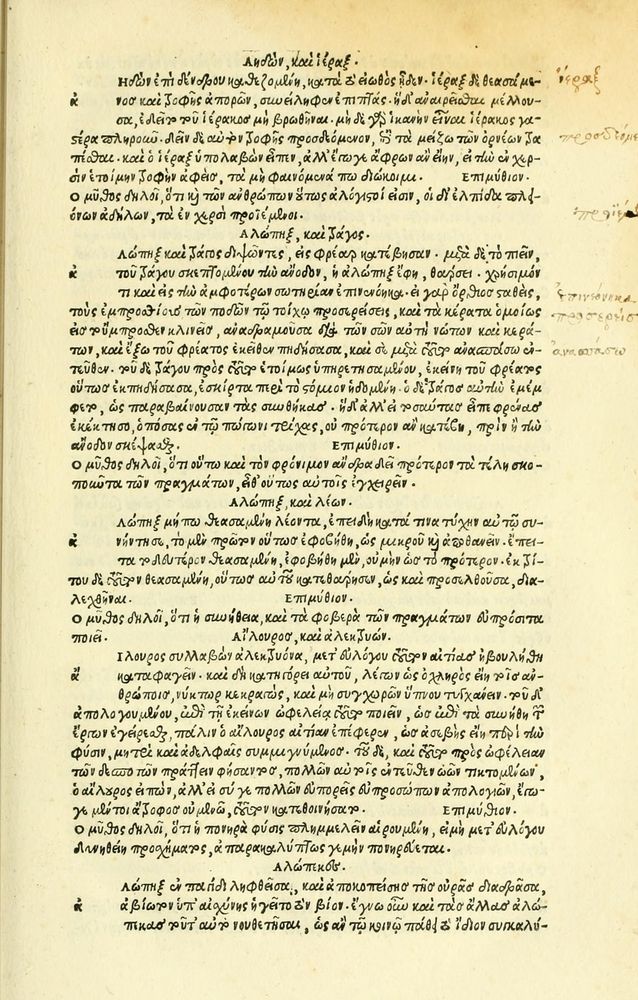 Αηδών, καὶ ἱέραξ.
Ηδὼν ἐπὶ δένδρου καθεζομένη, κατὰ τὸ εἰωθὸς ᾖδεν. ἱέραξ δὲ θεασάμε
α νος καὶ τροφῆς ἀπορῶν, συνείληφεν ἐπιπτάς. ἡ δ' ἀναιρεῖσθαι μέλλου-
σα, ἐδεῖτο τοῦ ἱέρακος μὴ βρωθῆναι. μὴ δὲ γὰρ ἱκανὴν εἶναι ἱέρακος γα-
στέρα πληροῦν. δεῖν δὲ αὐτὸν τροφῆς προσδεόμενον, ἐπὶ τὰ μείζω τῶν ὀρνέων τρα
πέσθαι. καὶ ὁ ἱέραξ ὑπολαβὼν εἶπεν, ἀλλ' ἔγωγε ἄφρων ἂν εἴην, εἰ τὴν ἐν χερ-
σὶν ἑτοίμην τροφὴν ἀφεὶς, τὰ μὴ φαινόμενά πω διώκοιμι. Επιμύθιον.
Ο μῦθος δηλοῖ, ὅτι καὶ τῶν ἀνθρώπων οὕτως ἀλόγιστοί εἰσιν, οἳ δι' ἐλπίδα πλει-
όνων ἀδήλων, τὰ ἐν χερσὶ προϊέμενοι.
Αλώπηξ, καὶ τράγος.
Λώπηξ καὶ τράγος διψῶντες, εἰς φρέαρ κατέβησαν. μετὰ δὲ τὸ πιεῖν,
α τοῦ τράγου σκεπτομένου τὴν ἄνοδον, ἡ ἀλώπηξ ἔφη, θάρσει. χρήσιμόν
τι καὶ εἰς τὴν ἀμφοτέρων σωτηρίαν ἐπινενόηκα. εἰ γὰρ ὄρθιος σταθείς,
τοὺς ἐμπροσθίους τῶν ποδῶν τῷ τοίχῳ προσερείσεις, καὶ τὰ κέρατα ὁμοίως
εἰς τοὔμπροσθεν κλινεῖς, ἀναδραμοῦσα διὰ τῶν σῶν αὐτὴ νώτων καὶ κερά-
των, καὶ ἔξω τοῦ φρέατος ἐκεῖθεν πηδήσασα, καὶ σὲ μετὰ τοῦτο ἀνασπάσω ἐν-
τεῦθεν. τοῦ δὲ τράγου πρὸς τοῦτο ἑτοίμως ὑπηρετησαμένου, ἐκείνη τοῦ φρέατος
οὕτως ἐκπηδήσασα, ἐσκίρτα περὶ τὸ στόμιον ἡδομένη. ὁ δὲ τράγος αὐτὴν ἐμέμ
φετο, ὡς παραβαίνουσαν τὰς συνθήκας. ἡ δ' ἀλλ' εἰ τοσαύτας εἶπε φρένας
ἐκέκτησο, ὁπόσας ἐν τῷ πώγωνι τρίχας, οὐ πρότερον ἂν κατέβης, πρὶν ἢ τὴν
ἄνοδον σκέψασθαι. Επιμύθιον.
Ο μῦθος δηλοῖ, ὅτι οὕτω καὶ τὸν φρόνιμον ἄνδρα δεῖ πρότερον τὰ τέλη σκο-
ποῦντα τῶν πραγμάτων, εἶθ' οὕτως αὐτοῖς ἐγχειρεῖν.
Αλώπηξ, καὶ λέων.
Λώπηξ μήπω θεασαμένη λέοντα, ἐπειδὴ κατά τινα τύχην αὐτῷ συ-
α νήντησε, τὸ μὲν πρῶτον οὕτως ἐφοβήθη, ὡς μικροῦ καὶ ἀποθανεῖν. ἔπει-
τα τὸ δεύτερον θεασαμένη, ἐφοβήθη μὲν, οὐ μὴν ὡς τὸ πρότερον. ἐκ τρί-
του δὲ τοῦτον θεασαμένη, οὕτως αὐτοῦ κατεθάρσησεν, ὡς καὶ προσελθοῦσα, δια-
λεχθῆναι. Επιμύθιον.
Ο μῦθος δηλοῖ, ὅτι ἡ συνήθεια, καὶ τὰ φοβερὰ τῶν πραγμάτων εὐπρόσιτα
ποιεῖ. Αἴλουρος, καὶ ἀλεκτρυών.
Ιλουρος συλλαβὼν ἀλεκτρυόνα, μετ' εὐλόγου τοῦτον αἰτίας ἠβουλήθη
α καταφαγεῖν. καὶ δὴ κατηγόρει αὐτοῦ, λέγων ὡς ὀχληρὸς εἴη τοῖς ἀν-
θρώποις, νύκτωρ κεκραγώς, καὶ μὴ συγχωρῶν ὕπνου τυγχάνειν. τοῦ δ'
ἀπολογουμένου, ἐπὶ τῇ ἐκείνων ὠφελείᾳ τοῦτο ποιεῖν, ὡς ἐπὶ τὰ συνήθη τῶν
ἔργων ἐγείρεσθαι, πάλιν ὁ αἴλουρος αἰτίαν ἐπέφερεν, ὡς ἀσεβὴς εἴη περὶ τὴν
φύσιν, μητρὶ καὶ ἀδελφαῖς συμμιγνύμενος. τοῦ δὲ, καὶ τοῦτο πρὸς ὠφέλειαν
τῶν δεσποτῶν πράττειν φήσαντος, πολλῶν αὐτοῖς ἐντεῦθεν ὠῶν τικτομένων,
ὁ αἴλουρος εἰπών, ἀλλ' εἰ σύ γε πολλῶν εὐπορεῖς εὐπροσώπων ἀπολογιῶν, ἔγω-
γε μέντοι ἄτροφος οὐ μενῶ, τοῦτον κατεθοινήσατο. Επιμύθιον.
Ο μῦθος δηλοῖ, ὅτι ἡ πονηρὰ φύσις πλημμελεῖν αἱρουμένη, εἰ μὴ μετ' εὐλόγου
δυνηθείη προσχήματος, ἀπαρακαλύπτως γε μὴν πονηρεύεται.
Αλώπεκος.
Λώπηξ ἐν παγίδι ληφθεῖσα, καὶ ἀποκοπείσης τῆς οὐρᾶς διαδρᾶσα,
α ἀβίωτον ὑπ' αἰσχύνης ἡγεῖτο τὸν βίον. ἔγνω οὖν καὶ τὰς ἄλλας ἀλώ-
πεκας τοῦτ' αὐτὸ νουθετῆσαι, ὡς ἂν τῷ κοινῷ πάθει τὸ ἴδιον συγκαλύ-
ἱέραξ